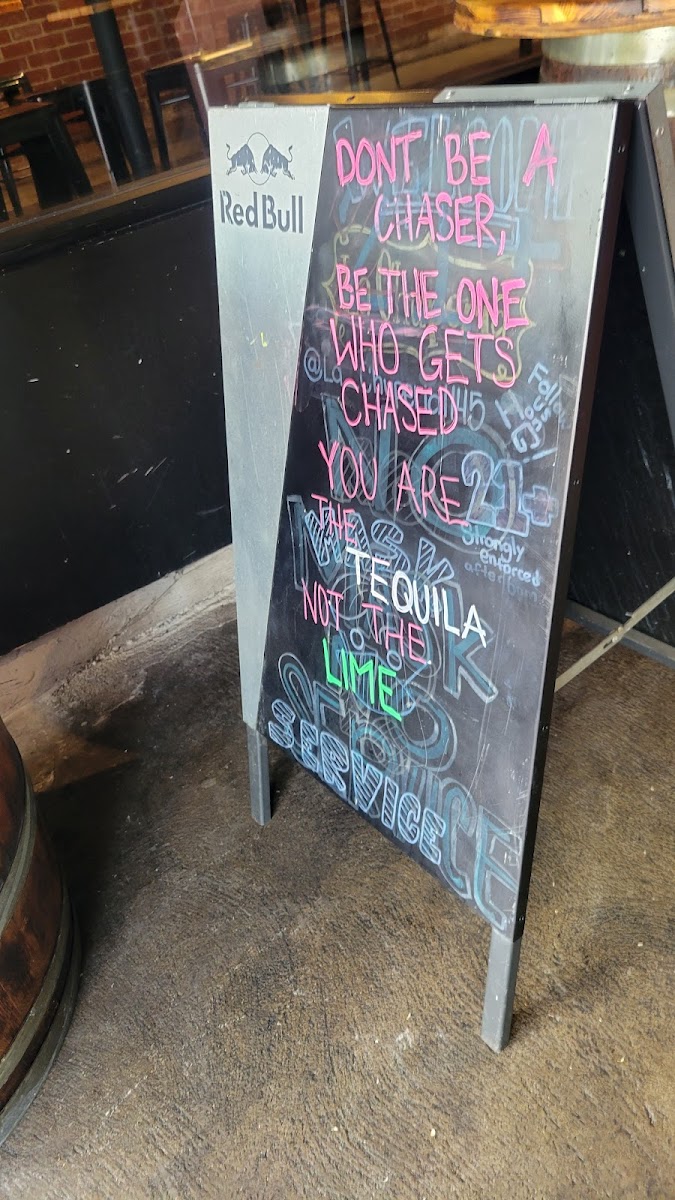 Red Bull
DONT BE A
CHASER,
BE THE ONE
WHO GETS
CHASED
YOU ARE
THE
TEQUILA
NOT THE
LIME
21+
Strongly
enforced
NO
MASK
NO
SERVICE